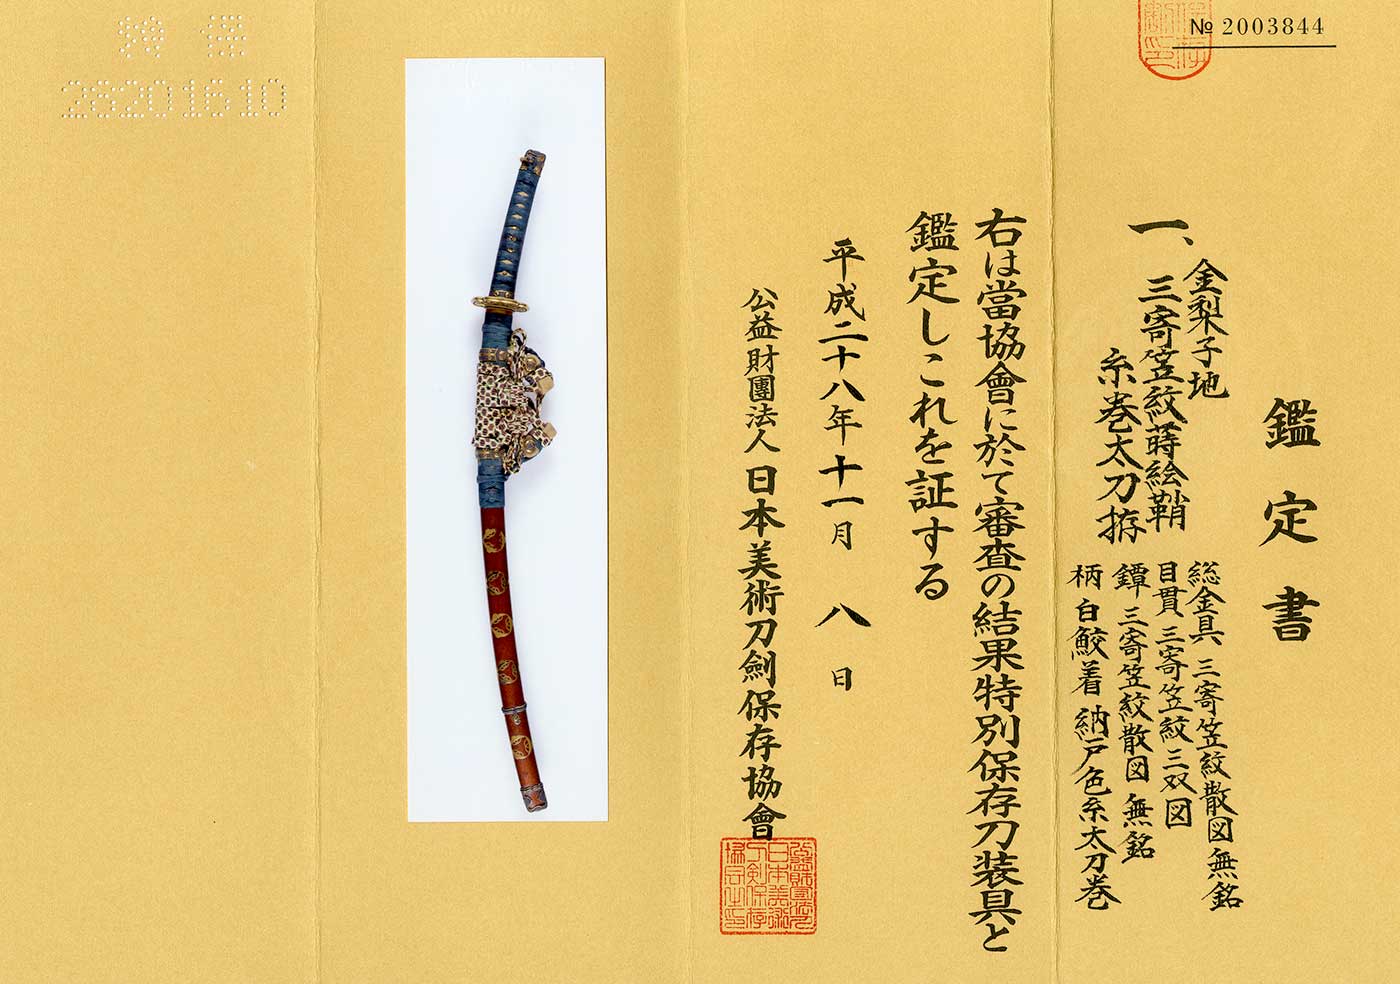 № 2003844
鑑定書
一、金梨子地
三寄笠紋蒔絵鞘
糸巻太刀拵
総金具 三寄笠紋散図 無銘
目貫 三寄笠紋三双図
鐔 三寄笠紋散図 無銘
柄 白鮫着 納戸色糸太刀巻
右は當協會に於て審査の結果特別保存刀装具と
鑑定しこれを証する
平成二十八年十一月 八 日
公益財團法人日本美術刀劍保存協會
特 保
26201610